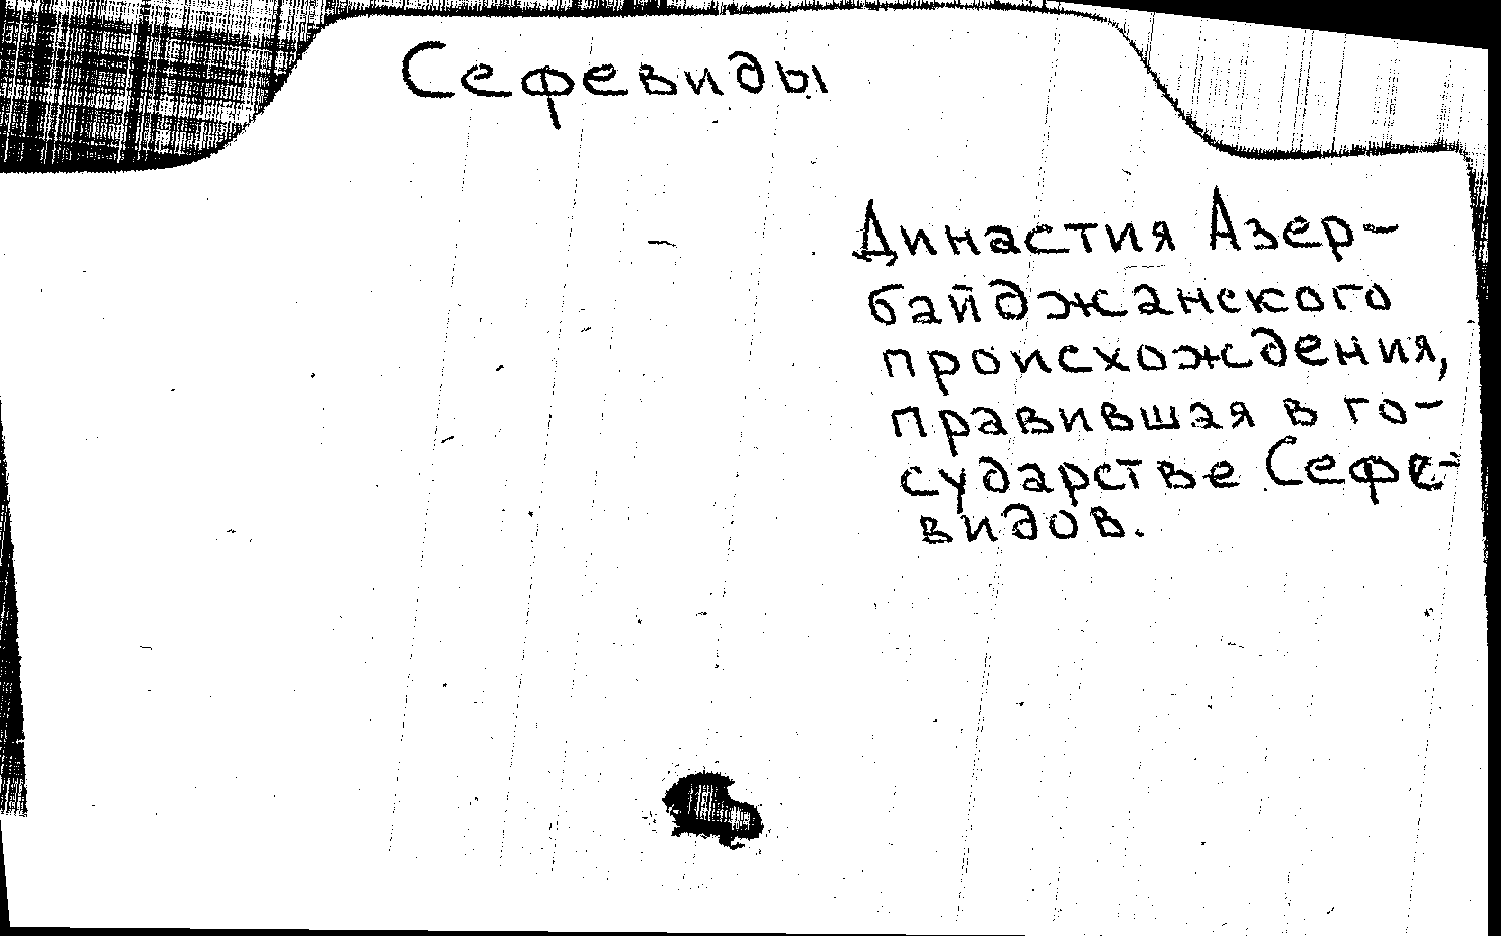 Сефевиды
Династия Азер-
байджанского
происхождения,
правившая в го-
сударстве Сефе-
видов.